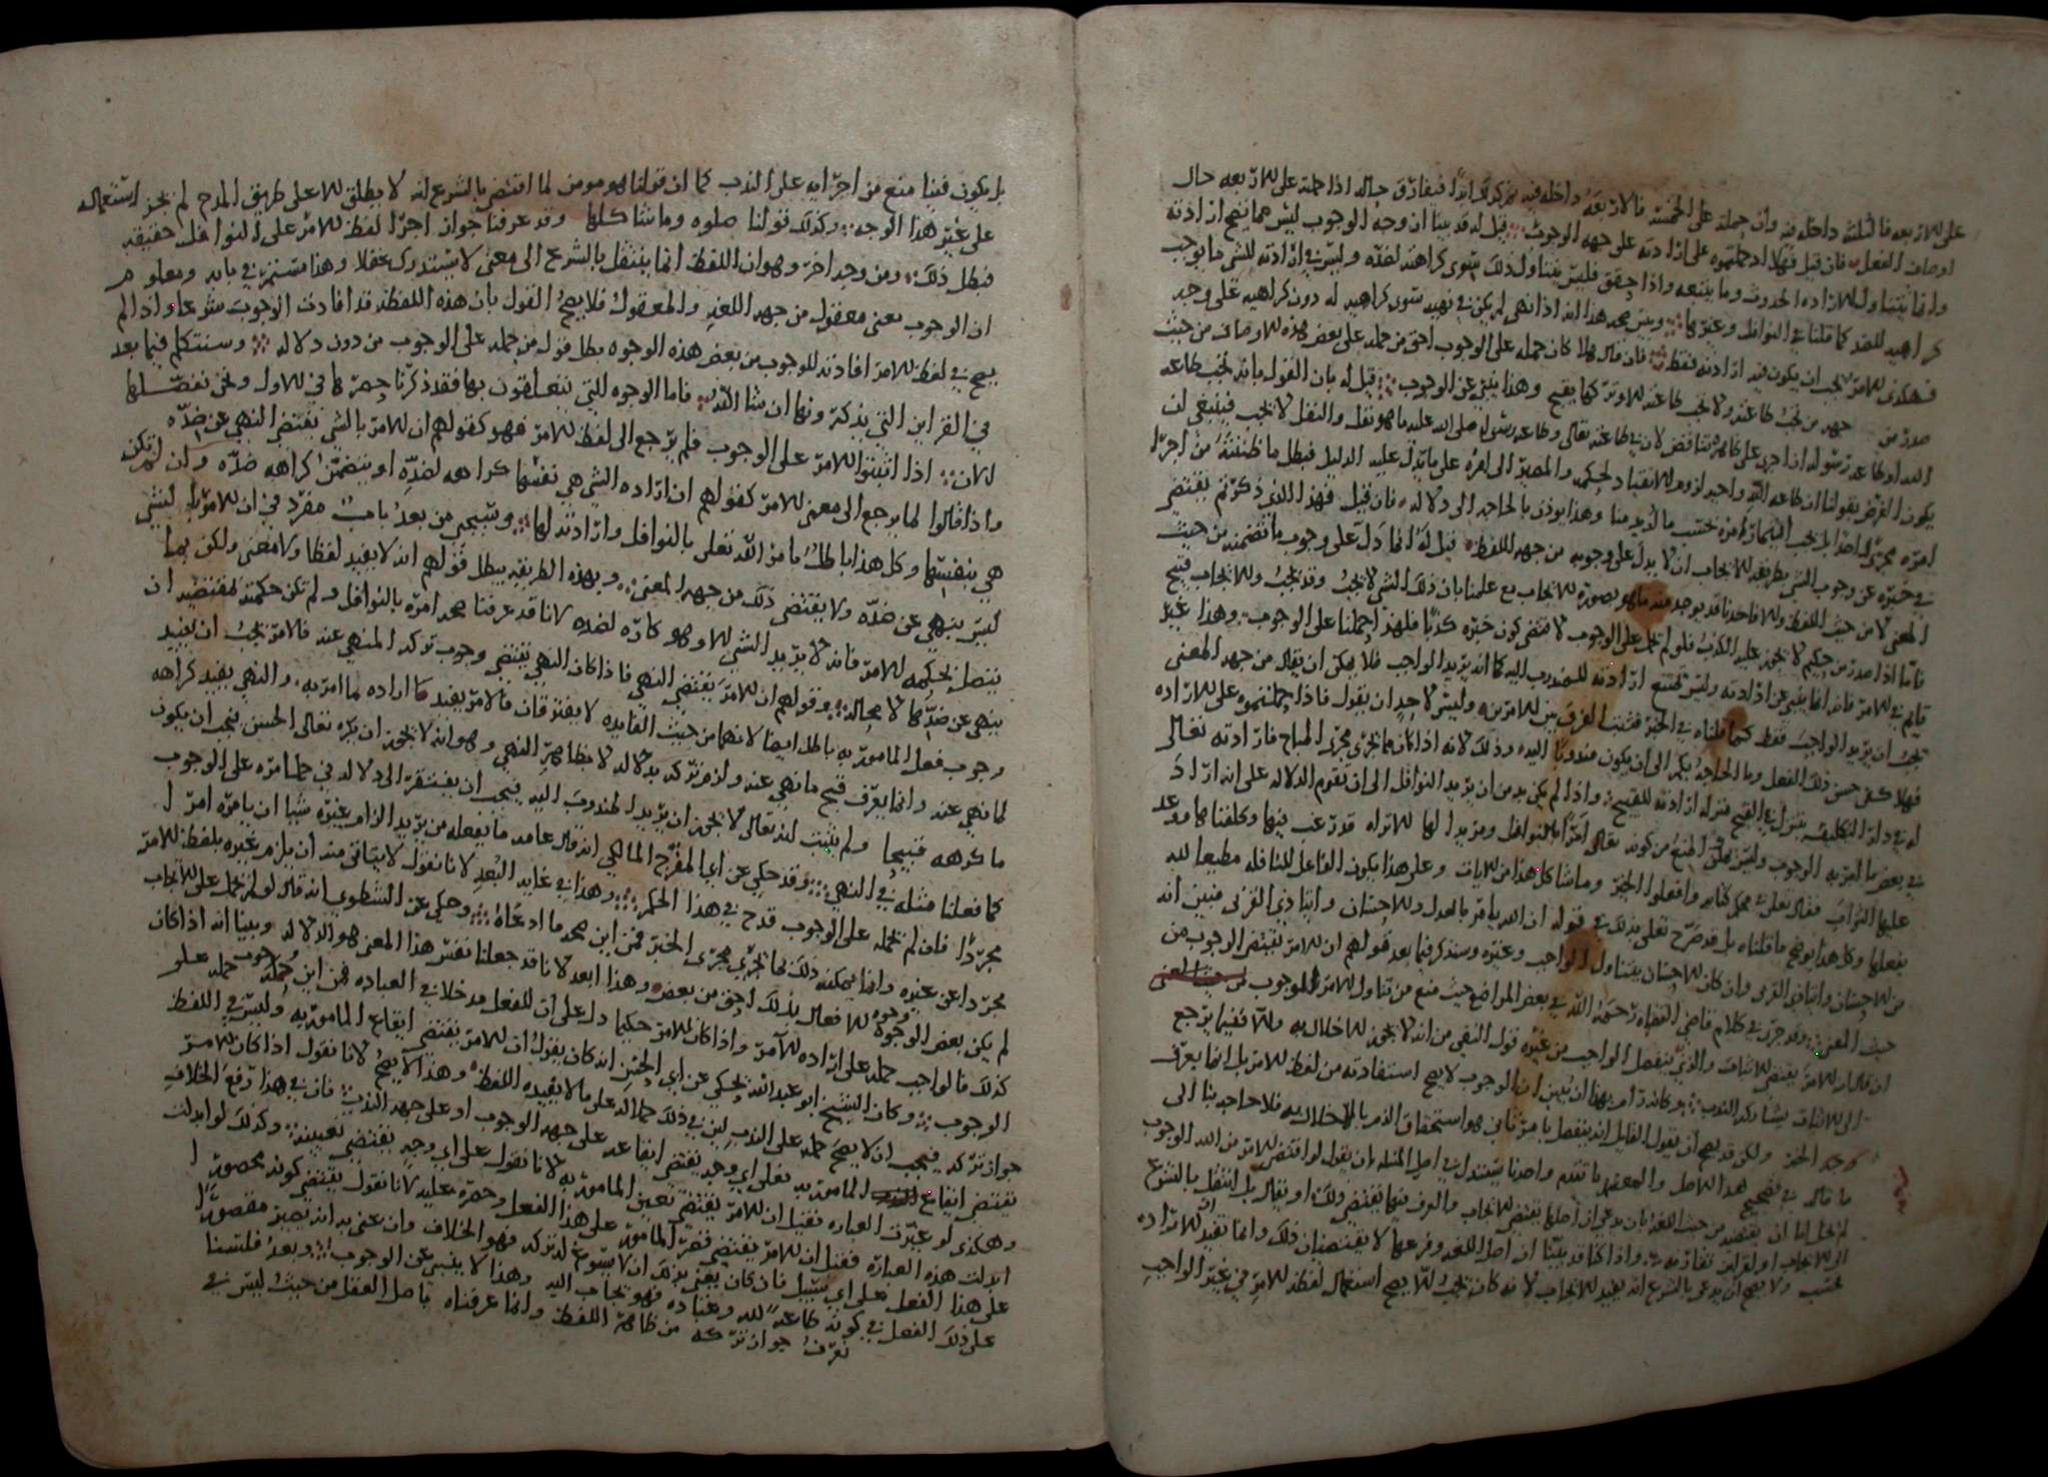 على الاربعه فالثلثه داخله فيه وان حمله على الخمسه فالاربعه داخله فيه ثم كذلك ابدا فيفارق حاله اذا حمله على الاربعه حال
اوصاف الفعل فان قيل فهلا حملتموه على ارادته على جهه الوجوب قيل له قد بينا ان وجه الوجوب ليس مما يصح ان ارادته
وانما يتناول الاراده الحدوث وما يتبعه واذا حقق فليس يتناول ذلك سوى كراهته لضده وليس في ارادته للشي ما يوجب
كراهيه للضد كما قلنا في النوافل وغيرها ويبين صحه هذا انه اذا نهى لم يكن في نهيه سوى كراهيه له دون كراهيه على وجه
فهكذى الامر يجب ان يكون فيه ارادته فقط فان قال هلا كان حمله على الوجوب احق من حمله على بعض هذه الاوصاف من حيث
صدر من جهه من تجب طاعته ولا تجب طاعته الا وتركها يقبح وهذا ينبي عن الوجوب قيل له بان القول بانه تجب طاعه
الله او طاعه رسوله اذا اجرى على ظاهره تناقض لان في طاعته تعالى وطاعه رسوله صلى الله عليه ما هو نفل والنفل لا يجب فينبغي ان
يكون الغرض بقولنا ان طاعه الله واجبه لزوم الانقياد لحكمه والمصير الى امره على ما يدل عليه الدليل فبطل ما ظننته من اجرا
امره مجرى واحدا بل يجب ايتمار امره حسب ما اريد منا وهذا يوذن بالحاجه الى دلاله فان قيل فهذا الذي ذكرتم يقتضي
في خبره عن وجوب الشي بطريقه الايجاب ان لا يدل على وجوبه من جهه اللفظ قيل له انما دل على وجوب ما تضمنه من حيث
المعنى لا من حيث اللفظ والا فاحدنا قد يوجد منه ما هو بصوره الايجاب مع علمنا بان ذلك الشي لا يجب وقد يجب والايجاب قبيح
فاما اذا صدر من حكيم لا يجوز عليه الكذب فلو لم يحمل على الوجوب لاقتضى كون خبره كذبا فلهذا حملنا على الوجوب وهذا غير
قايم في الامر فانه انما ينبي عن ارادته وليس يمتنع ارادته للمندوب اليه كما انه يريد الواجب فلا يمكن ان يقال من جهه المعنى
يجب ان يريد الواجب فقط كما قلناه في الخبر فثبت الفرق بين الامرين وليس لاحد ان يقول فاذا حملتموه على الاراده
فهلا كفى حسن ذلك الفعل وما الحاجه بكم الى ان يكون مندوبا اليه وذلك لانه اذا كان مما يجري مجرى المباح فارادته تعالى
له في دار التكليف يتنزل في القبح منزله ارادته للقبيح واذا لم يكن بد من ان يريد النوافل الى ان تقوم الدلاله على انه اراد
في بعض ما امر به الوجوب وليس يمكن المنع من كونه تعالى امرا بالنوافل ومريدا لها الا تراه قد رغب فيها وكلفناها ووعد
عليها الثواب فقال تعلى في محكم كتابه وافعلوا الخير وما شاكل هذا من الايات وعلى هذا يكون الفاعل للنافله مطيعا لله
بفعلها وكل هذا يوضح ما قلناه بل قد صرح تعلى بذلك في قوله ان الله يامر بالعدل والاحسان وايتا ذي القربى فتبين انه
من الاحسان وايتا ذي القربى وان كان الاحسان يتناول الواجب وغيره وسنذكر فيما بعد قولهم ان الامر يقتضي الوجوب من
حيث المعنى وقد جرى في كلام قاضي القضاه رحمه الله في بعض المواضع حيث منع من تناول الامر الموجوب من حيث المعنى
ان قال ان الامر يقتضي الاثبات والذي ينفصل الواجب من غيره قول النفي من انه لا يجوز الاخلال به والا ففيما يرجع
الى الاثبات يشاركه الندب وكانه رام بهذا ان يبين ان الوجوب لا يصح استفادته من لفظ الامر بل انما يعرف
كوجه الخبر ولكن قد يصح ان يقول القايل انه ينفصل بامر ثاني هو استحقاق الذم بالاخلال به فلا حاجه بنا الى
ما قاله في تصحيح هذا الاصل والمعتمد ما تقدم واحدنا يستدل في اصل المسله بان يقول لو اقتضى الامر من الله الوجوب
لم يخل اما ان يقتضيه من حيث اللغه بان يدعي ان اصلها يقتضي الايجاب والعرف فيها يقتضي ذلك او يقال بل انتقل بالشرع
الى الايجاب او لقراين تقارنه واذا كنا قد بينا ان اصل اللغه وفرعها لا يقتضيان ذلك وانما تفيد الاراده
حسب ولا يصح ان يدعى بالشرع انه يفيد الايجاب لانه كان يجب الا يصح استعمال لفظه الامر في غير الواجب
بل يكون فينا منع من اجرايه على الندب كما ان قولنا هو مومن لما اقتضى بالشرع انه لا يطلق الا على طريق المدح لم يجز استعماله
على غير هذا الوجه وكذلك قولنا صلوه وما شاكلها وقد عرفنا جواز اجرا لفظ الامر على النوافل حقيقه
فبطل ذلك ومن وجه اخر وهو ان اللفظ انما ينتقل بالشرع الى معنى لا يستدرك عقلا وهذا مستمر في بابه ومعلوم
ان الوجوب معنى معقول من جهه اللغه والمعقول فلا يصح القول بان هذه اللفظه قد افادت الوجوب شرعا واذا لم
يصح في لفظ الامر افادته للوجوب من بعض هذه الوجوه بطل قول من حمله على الوجوب من دون دلاله وسنتكلم فيما بعد
في القراين التي يذكرونها ان شا الله فاما الوجوه التي يتعلقون بها فقد ذكرنا جمرها في الاول ونحن نفصلها
الان اذا اثبتوا الامر على الوجوب فلم يرجع الى لفظ الامر فهو كقولهم ان الامر بالشي يقتضي النهي عن ضده
واذا قالوا لما يرجع الى معنى الامر كقولهم ان اراده الشي هي نفسها كراهه لضده او يتضمن كراهه ضده وان لم تكن
هي بنفسها وكل هذا باطل بما مر الله تعلى بالنوافل وارادته لها وسيجي من بعد باب مفرد في ان الامر بالشي
ليس بنهي عن ضده ولا يقتضي ذلك من جهه المعنى وبهذه الطريقه يبطل قولهم انه لا يفيد لفظا ولا معنى ولكن بما
يتصل بحكمه الامر فانه لا يريد الشي الا وهو كاره لضده لانا قد عرفنا صحه امره بالنوافل ولم تكن حكمته مقتضيه ان
ينهى عن ضدها لا محاله وقولهم ان الامر يقتضي النهي فاذا كان النهي يقتضي وجوب ترك المنهي عنه فالامر يجب ان يفيد
وجوب فعل المامور به باطل ايضا لانهما من حيث الفايده لا يفترقان فالامر يفيد اراده ما امر به والنهي يفيد كراهه
لما نهي عنه وانما يعرف قبح ما نهي عنه ولزوم تركه بدلاله لا بظاهر النهي وهو انه لا يجوز ان يكره تعالى الحسن فيجب ان يكون
ما كرهه قبيحا ولم يثبت انه تعالى لا يجوز ان يريد المندوب اليه فيجب ان يفتقر الى دلاله في حمل امره على الوجوب
كما فعلنا مثله في النهي وقد حكي عن ابي الفرج المالكي انه قال عامه ما يفعله من يريد الزام غيره شيا ان يامره امرا
مجردا فان لم نحمله على الوجوب قدح في هذا الحكم وهذا في غايه البعد لانا نقول لا يتاتى منه ان يلزم غيره بلفظ الامر
مجردا عن غيره وانما يمكنه ذلك بما يجري مجرى الخبر فمن اين صحه ما ادعاه وحكي عن الشطوي انه قال لو لم يحمل على الايجاب
لم يكن بعض الوجوه الافعال بذلك احق من بعض وهذا ابعد لانا قد جعلنا نفس هذا المعنى هو الدلاله وبينا انه اذا كان
كذلك فالواجب حمله على اراده الامر واذا كان الامر حكيما دل على ان للفعل مدخلا في العباده فمن اين وجوب حمله على
الوجوب وكان الشيخ ابو عبد الله يحكي عن ابي الحسن انه كان يقول ان الامر يقتضي ايقاع المامور به وليس في اللفظ
جواز تركه فيجب ان لا يصح حمله على الندب لان في ذلك حملا له على ما لا يفيده اللفظ وهذا لا يصح لانا نقول اذا كان الامر
يقتضي ايقاع المامور به فعلى اي وجه يقتضي ايقاعه على جهه الوجوب او على جهه الندب فان في هذا وقع الخلاف
وهكذى لو غيرت العباره فقيل ان الامر يقتضي تعيين المامور به لانا نقول على اي وجه يقتضي تعيينه وكذلك لو ابدلت
ابدلت هذه العباره فقيل ان الامر يقتضي قصر المامور على هذا الفعل وحصره عليه لانا نقول يقتضي كونه محصورا
على هذا الفعل على اي سبيل فان كان يعني بذلك ان لا يسوغ له تركه فهو الخلاف وان عنى به انه يصير مقصورا
على ذلك الفعل في كونه طاعه لله وعباده فهو يجاب اليه وهذا لا ينبي عن الوجوب وبعد فلسنا
نعرف جواز تركه من ظاهر اللفظ وانما عرفناه باصل العقل من حيث ليس في